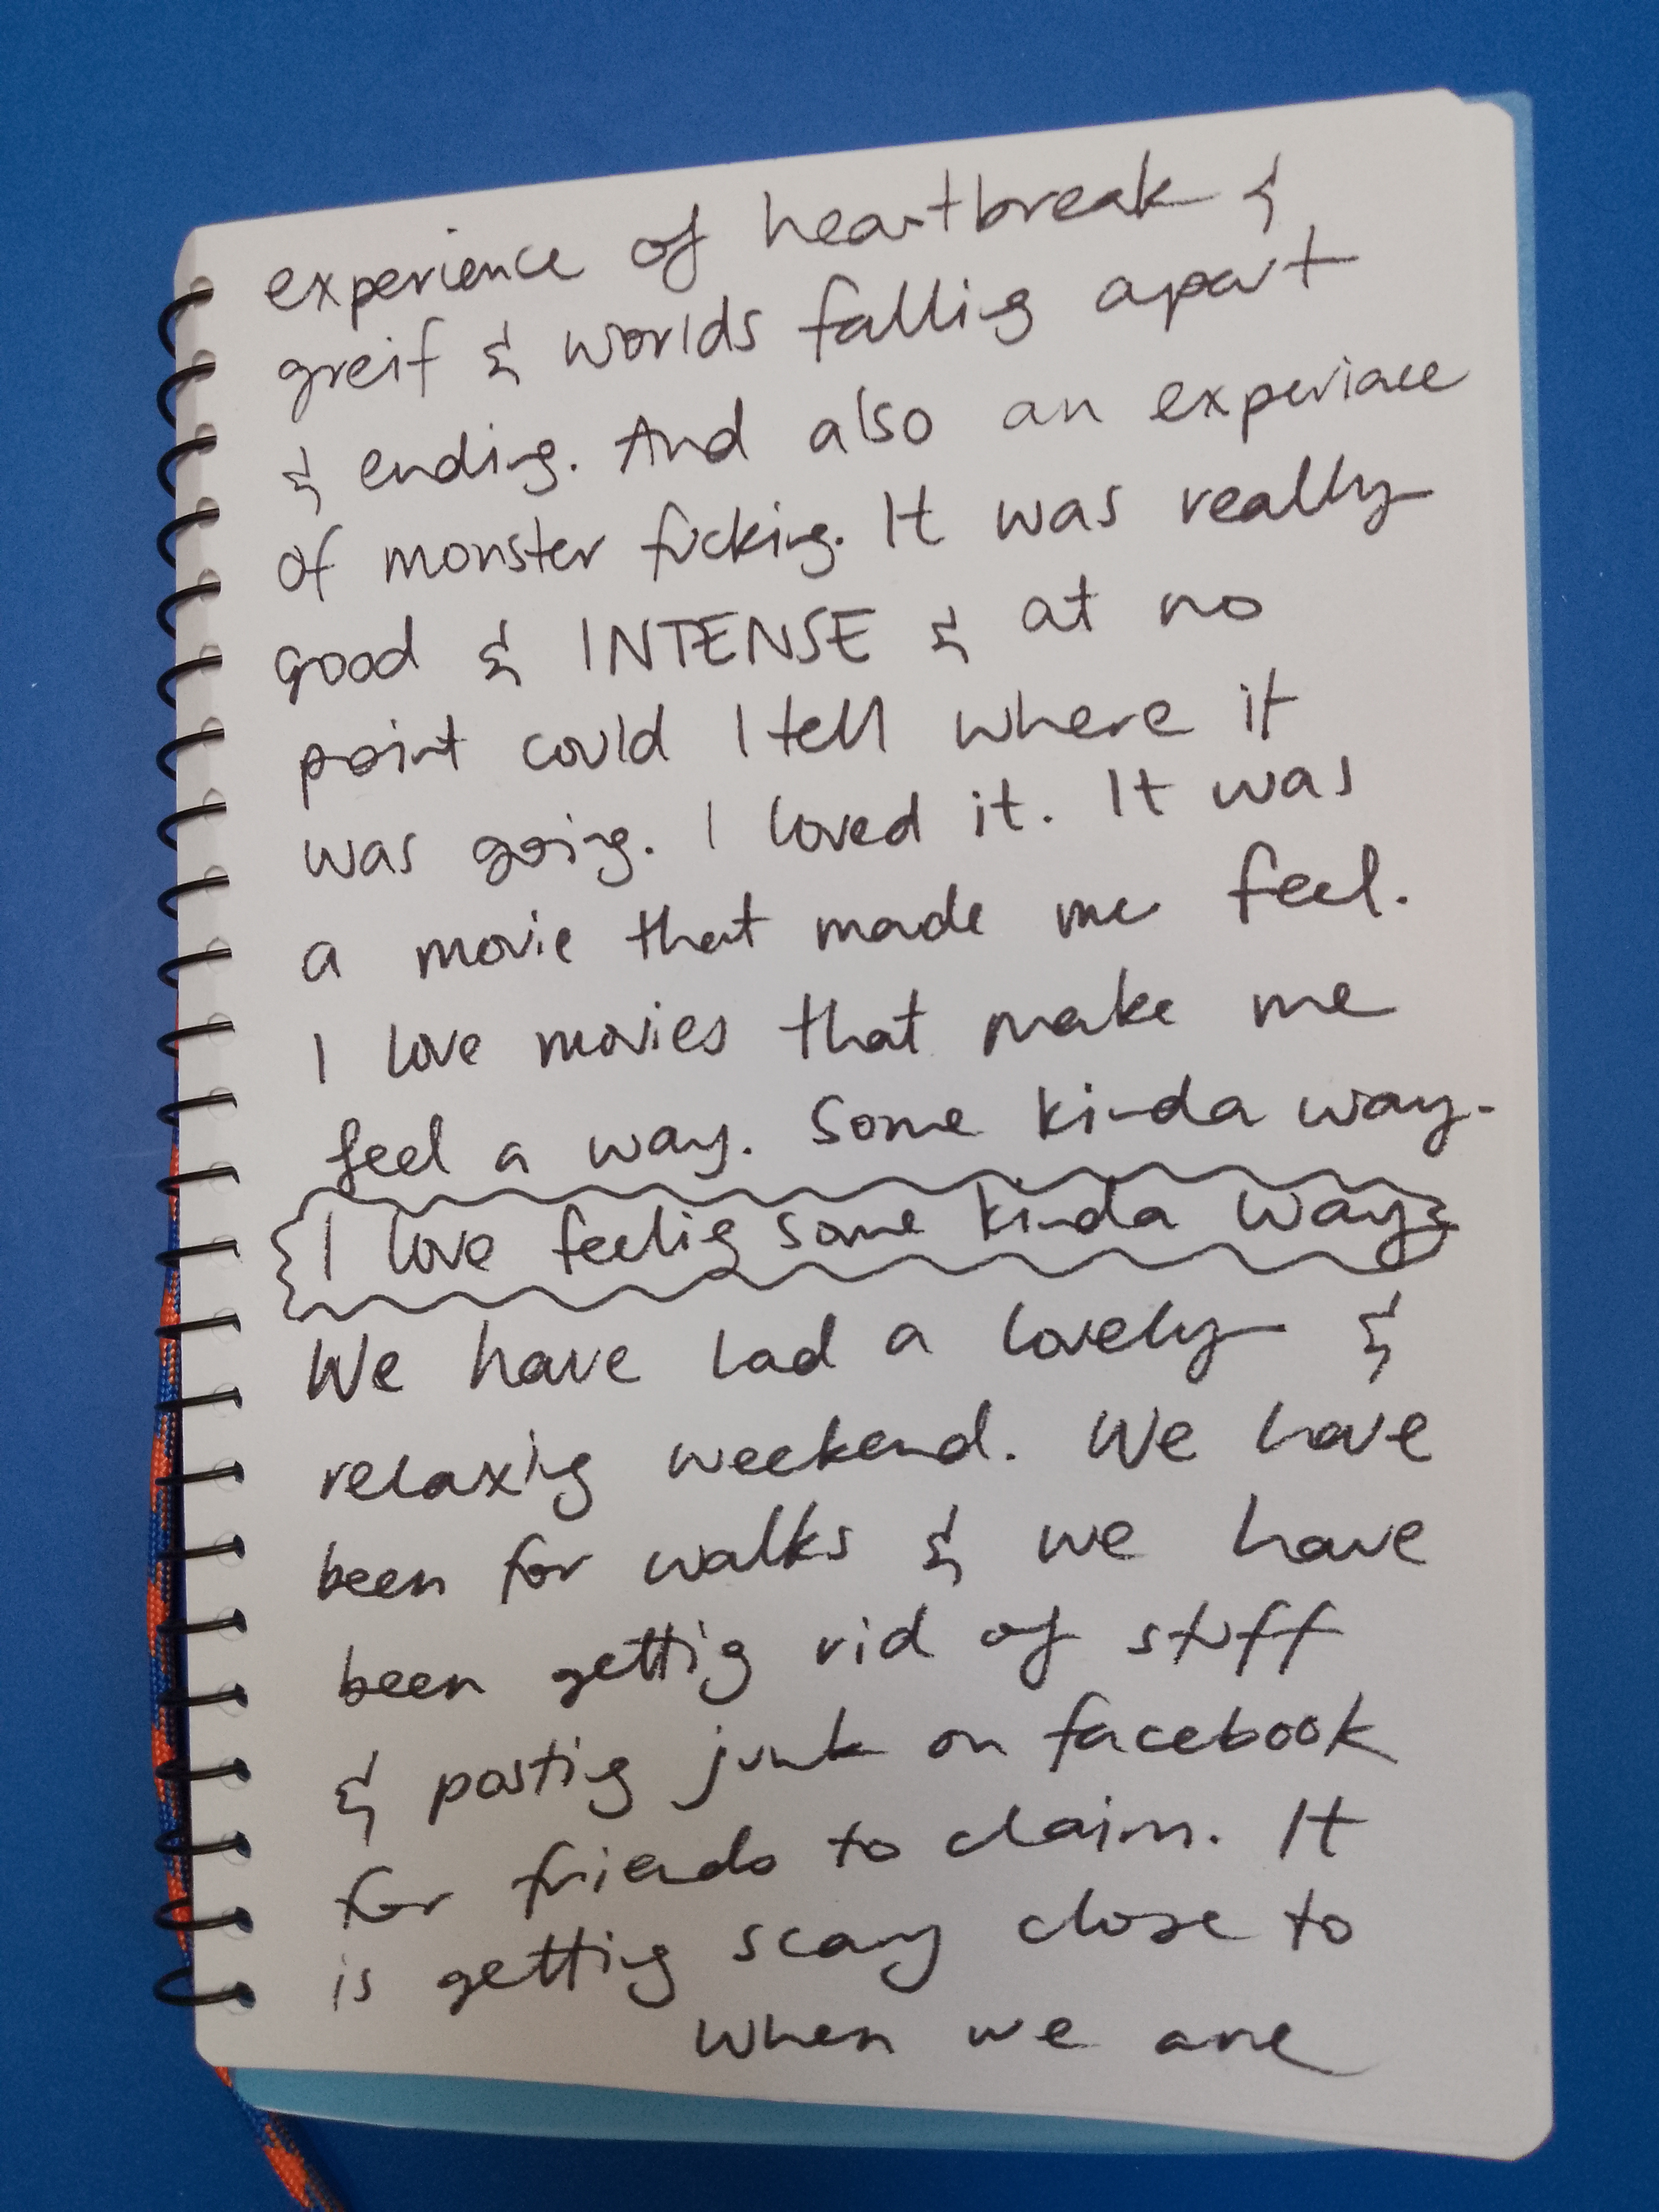 experience of heartbreak &
greif & worlds falling apart
& ending. And also an experience
of monster fucking. It was really
good & INTENSE & at no
point could I tell where it
was going. I loved it. It was
a movie that made me feel.
I love movies that make me
feel a way. Some kinda way.
I love feeling some kinda way
We have had a lovely &
relaxing weekend. We have
been for walks & we have
been getting rid of stuff
& posting junk on facebook
for friends to claim. It
is getting scary close to
when we are